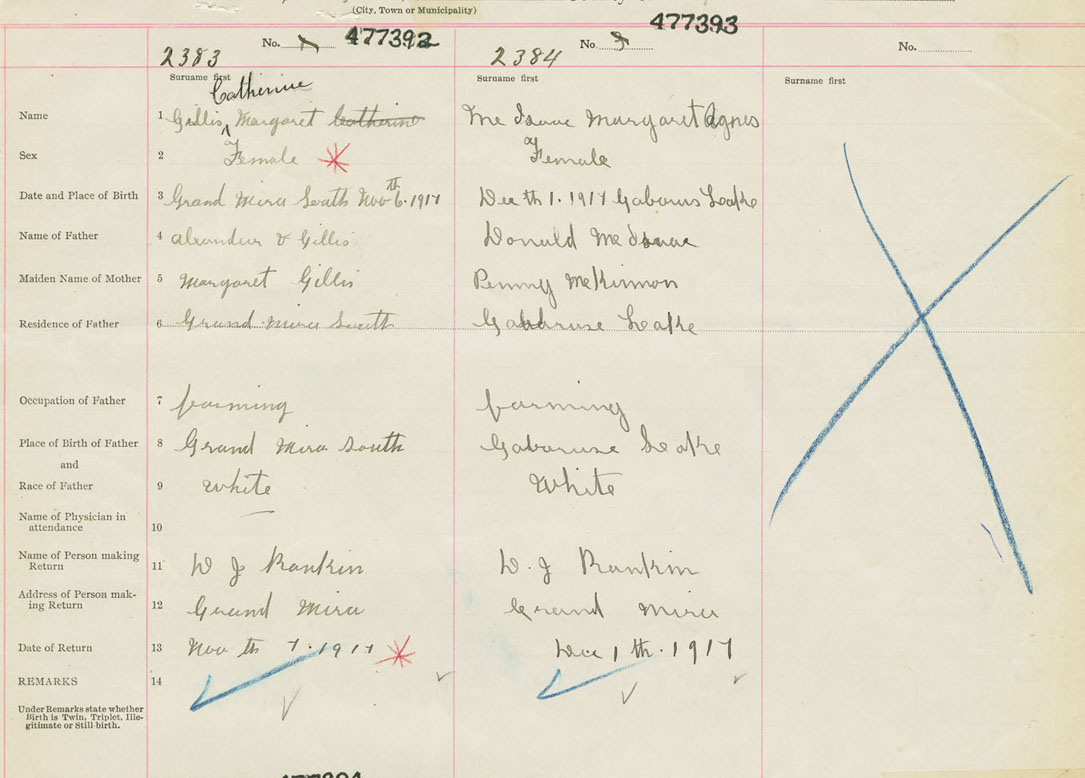 (City, Town or Municipality)
No. 477392 No. 477393 No.
2383 2384
Surname first Surname first Surname first
Catherine
Name 1 Gillis, Margaret Catherine Mc Isaac Margaret Agnes
Sex 2 Female Female
Date and Place of Birth 3 Grand Mira South Nov 6th 1917 Dec th 1. 1917 Gabarus Leake
Name of Father 4 alxandeur Gillis Donald Mc Isaac
Maiden Name of Mother 5 Margaret Gillis Penny McKinnon
Residence of Father 6 Grand Mira South Gabaruse Leake
Occupation of Father 7 farming farming
Place of Birth of Father 8 Grand Mira South Gabaruse Leake
and
Race of Father 9 White White
Name of Physician in
attendance 10
Name of Person making
Return 11 D J Rankin D. J Rankin
Address of Person mak-
ing Return 12 Grand Mira Grand Mira
Date of Return 13 Nov th 7. 1917 Dec 1 th. 1917
REMARKS 14
Under Remarks state whether
Birth is Twin, Triplet, Ille-
gitimate or Still-birth.